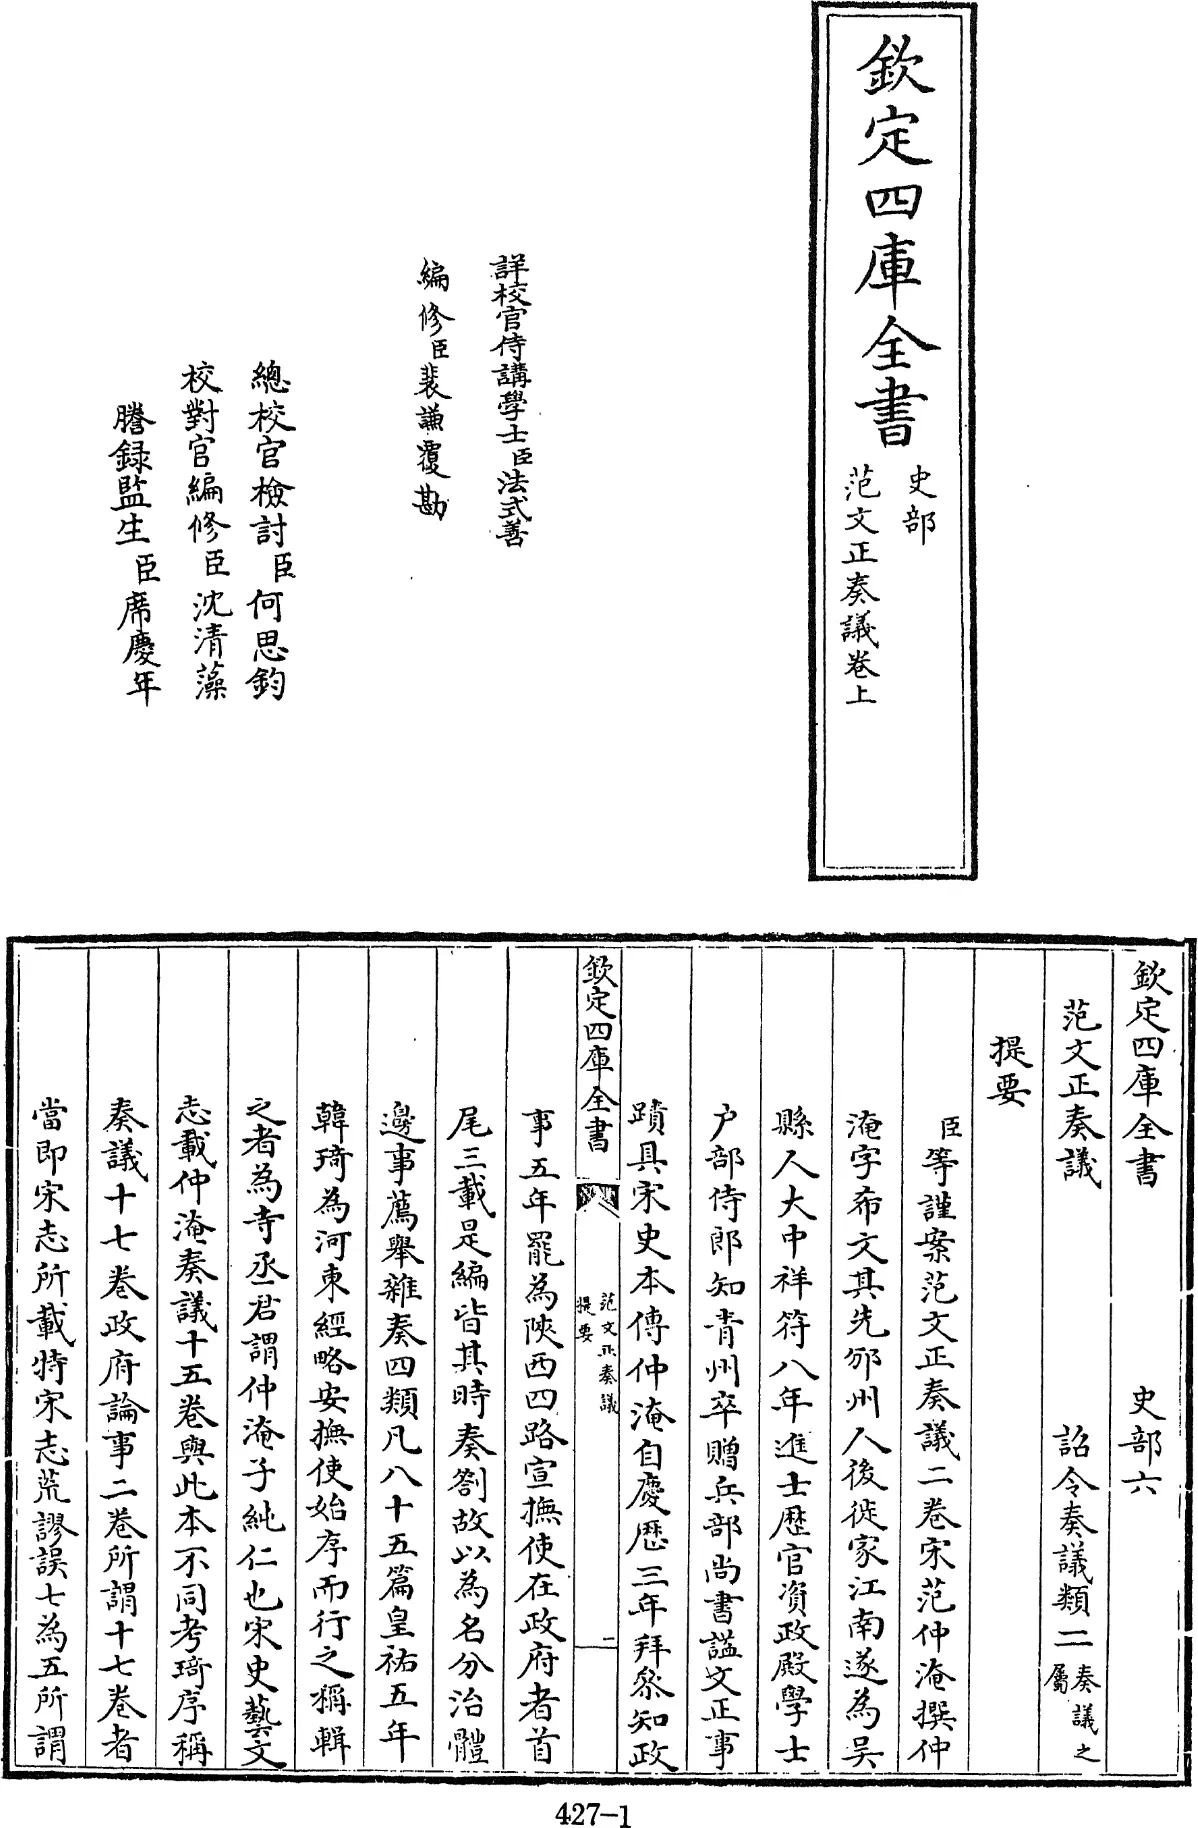 欽定四庫全書
史部
范文正奏議卷上
詳校官侍講學士臣法式善
編修臣裴謙覆勘
總校官檢討臣何思鈞
校對官編修臣沈清藻
謄錄監生臣席慶年
欽定四庫全書 史部六
范文正奏議 詔令奏議類二奏議之屬
提要
臣等謹案范文正奏議二卷宋范仲淹撰仲
淹字希文其先邠州人後徙家江南遂為吳
縣人大中祥符八年進士歷官資政殿學士
户部侍郎知青州卒贈兵部尚書諡文正事
蹟具宋史本傳仲淹自慶歷三年拜叅知政
欽定四庫全書
范文正奏議
提要
一
事五年罷為陜西四路宣撫使在政府者首
尾三載是編皆其時奏劄故以為名分治體
邊事薦舉雜奏四類凡八十五篇皇祐五年
韓琦為河東經略安撫使始序而行之稱輯
之者為寺丞君謂仲淹子純仁也宋史藝文
志載仲淹奏議十五卷與此本不同考琦序稱
奏議十七卷政府論事二卷所謂十七卷者
當即宋志所載特宋志荒謬誤七為五所謂
427-1